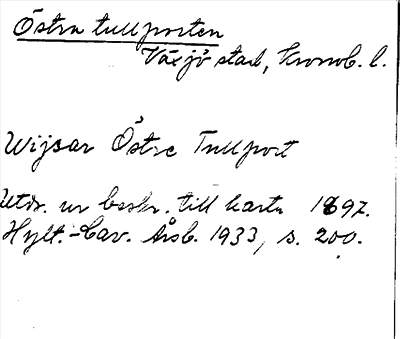 Östra tullporten
Växjö stad, Kronob. l.
Wijsar Östre Tullport
Utdr. ur beskr. till karta 1697.
Hylt.-Cav. Årsb. 1933, s. 200.